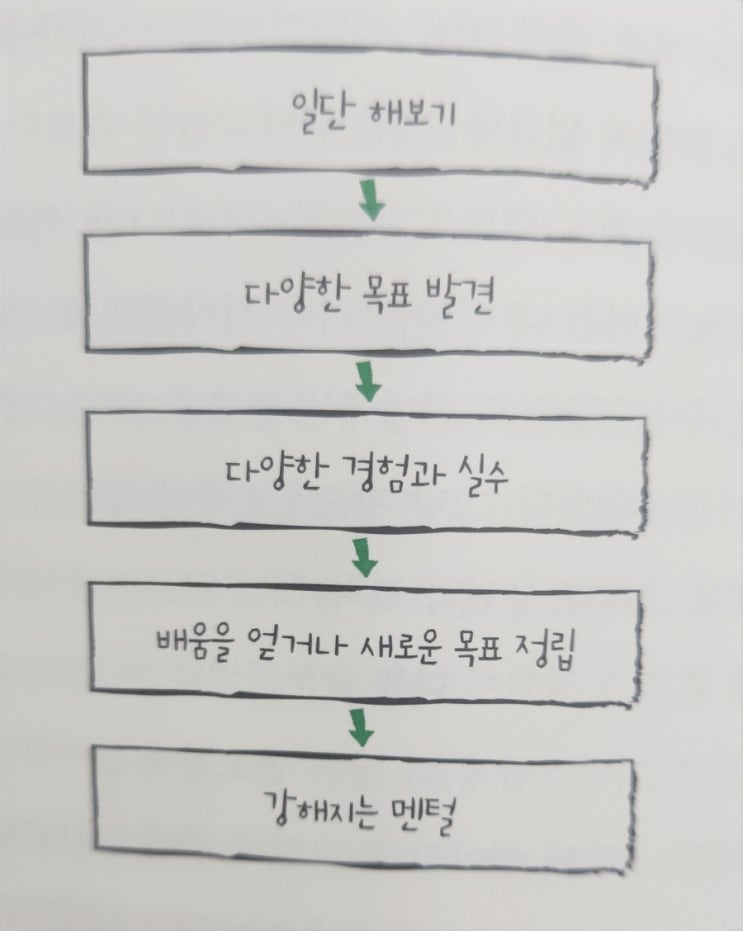 일단 해보기
다양한 목표 발견
다양한 경험과 실수
배움을 얻거나 새로운 목표 정립
강해지는 멘털